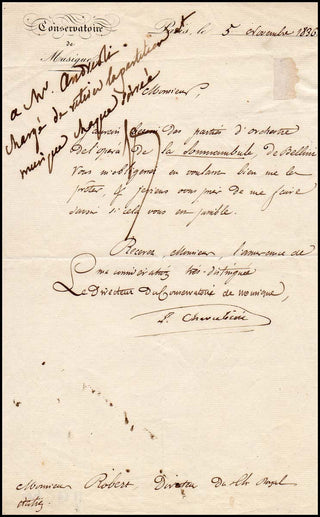 Conservatoire
de
Musique.
Paris, le 5 Décembre 1836
a Mr. Andreoli
chargé de retirer la partition et
musique chaque soirée
Monsieur
J'aurai besoin des parties d'orchestre
de l'opéra de la Somnambule, de Bellini
Vous m'obligerez en voulant bien me les
prêter, & je viens vous prier de me faire
savoir si cela vous est possible.
Recevez, Monsieur, l'assurance de
ma considération très distinguée
Le Directeur du Conservatoire de musique,
L. Cherubini
Monsieur Robert, Directeur du Th. Royal
Italien